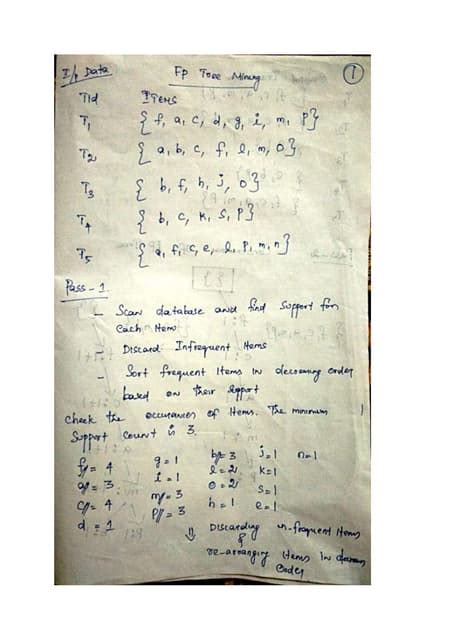 I/p Data FP Tree Mining 1
TId ITEMS
T1 { f, a, c, d, g, i, m, P}
T2 { a, b, c, f, l, m, O}
T3 { b, f, h, j, o}
T4 { b, c, K, S, P}
T5 { a, f, c, e, l, P, m, n}
Pass - 1
- Scan database and find Support for
each item
- Discard Infrequent Items
- Sort frequent Items in decreasing order
based on their support
check the occurances of Items. The minimum
Support count is 3.
f = 4 g = 1 b = 3 j = 1 n = 1
a = 3 i = 1 l = 2 K = 1
c = 4 m = 3 o = 2 S = 1
d = 1 P = 3 h = 1 e = 1
⇓ Discarding in-frequent Items
&
re-arranging items in
order